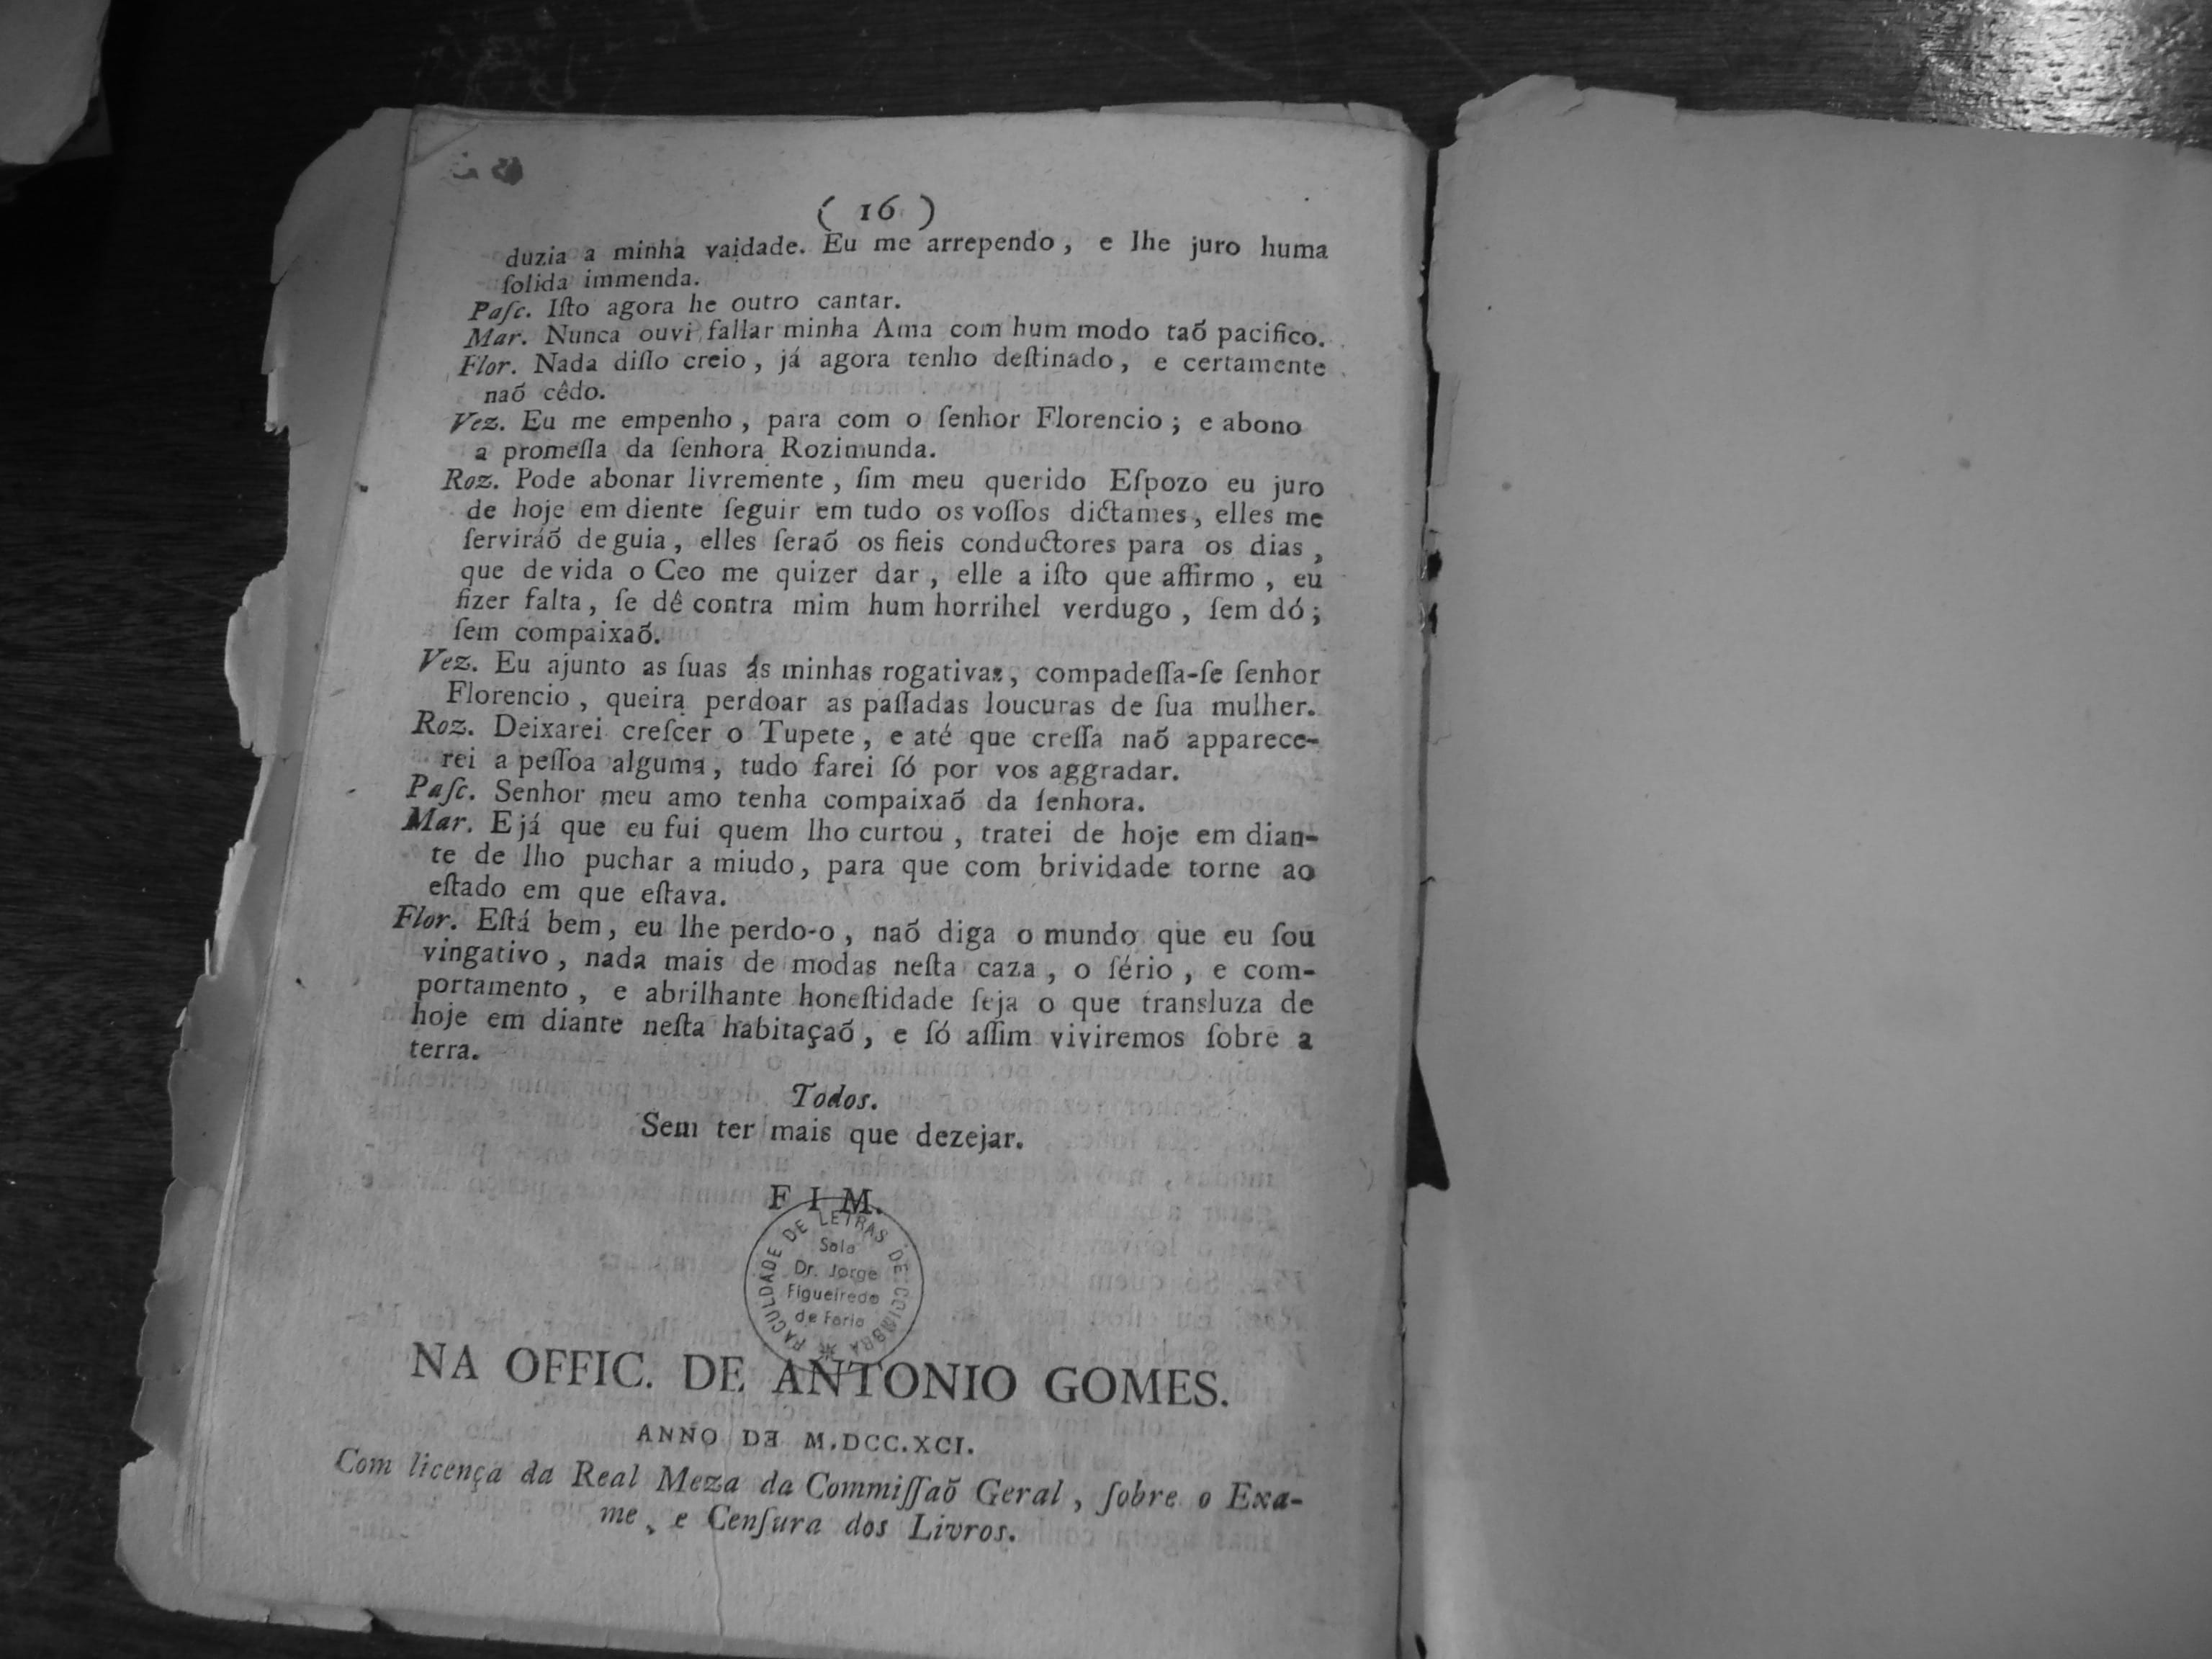 ( 16 )
duzia a minha vaidade. Eu me arrependo, e lhe juro huma
ſolida immenda.
Paſc. Iſto agora he outro cantar.
Mar. Nunca ouvi fallar minha Ama com hum modo taõ pacifico.
Flor. Nada diſſo creio, já agora tenho deſtinado, e certamente
naõ cêdo.
Vez. Eu me empenho, para com o ſenhor Florencio; e abono
a promeſſa da ſenhora Rozimunda.
Roz. Pode abonar livremente, ſim meu querido Eſpozo eu juro
de hoje em diente ſeguir em tudo os voſſos dictames, elles me
ſerviráõ de guia, elles ſeraõ os fieis conductores para os dias,
que de vida o Ceo me quizer dar, elle a iſto que affirmo, eu
fizer falta, ſe dê contra mim hum horrihel verdugo, ſem dó;
ſem compaixaõ.
Vez. Eu ajunto as ſuas ás minhas rogativas, compadeſſa-ſe ſenhor
Florencio, queira perdoar as paſſadas loucuras de ſua mulher.
Roz. Deixarei creſcer o Tupete, e até que creſſa naõ apparece-
rei a peſſoa alguma, tudo farei ſó por vos aggradar.
Paſc. Senhor meu amo tenha compaixaõ da ſenhora.
Mar. E já que eu fui quem lho curtou, tratei de hoje em dian-
te de lho puchar a miudo, para que com brividade torne ao
eſtado em que eſtava.
Flor. Eſtá bem, eu lhe perdo-o, naõ diga o mundo que eu ſou
vingativo, nada mais de modas neſta caza, o ſério, e com-
portamento, e abrilhante honeſtidade ſeja o que transluza de
hoje em diante neſta habitaçaõ, e ſó aſſim viviremos ſobre a
terra.
Todos.
Sem ter mais que dezejar.
FIM.
FACULDADE DE LETRAS DE COIMBRA
Sala
Dr. Jorge
Figueiredo
de Faria
NA OFFIC. DE ANTONIO GOMES.
ANNO DE M.DCC.XCI.
Com licença da Real Meza da Commiſſaõ Geral, ſobre o Exa-
me, e Cenſura dos Livros.